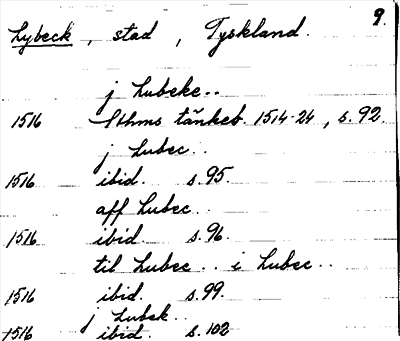 9.
Lybeck, stad, Tyskland.
j Lubeke..
1516 Sthms tänkeb. 1514-24, s. 92.
j Lubec..
1516 ibid. s. 95.
aff Lubec..
1516 ibid. s. 96.
til Lubec.. i Lubec..
1516 ibid. s. 99.
j Lubek..
1516 ibid. s. 102